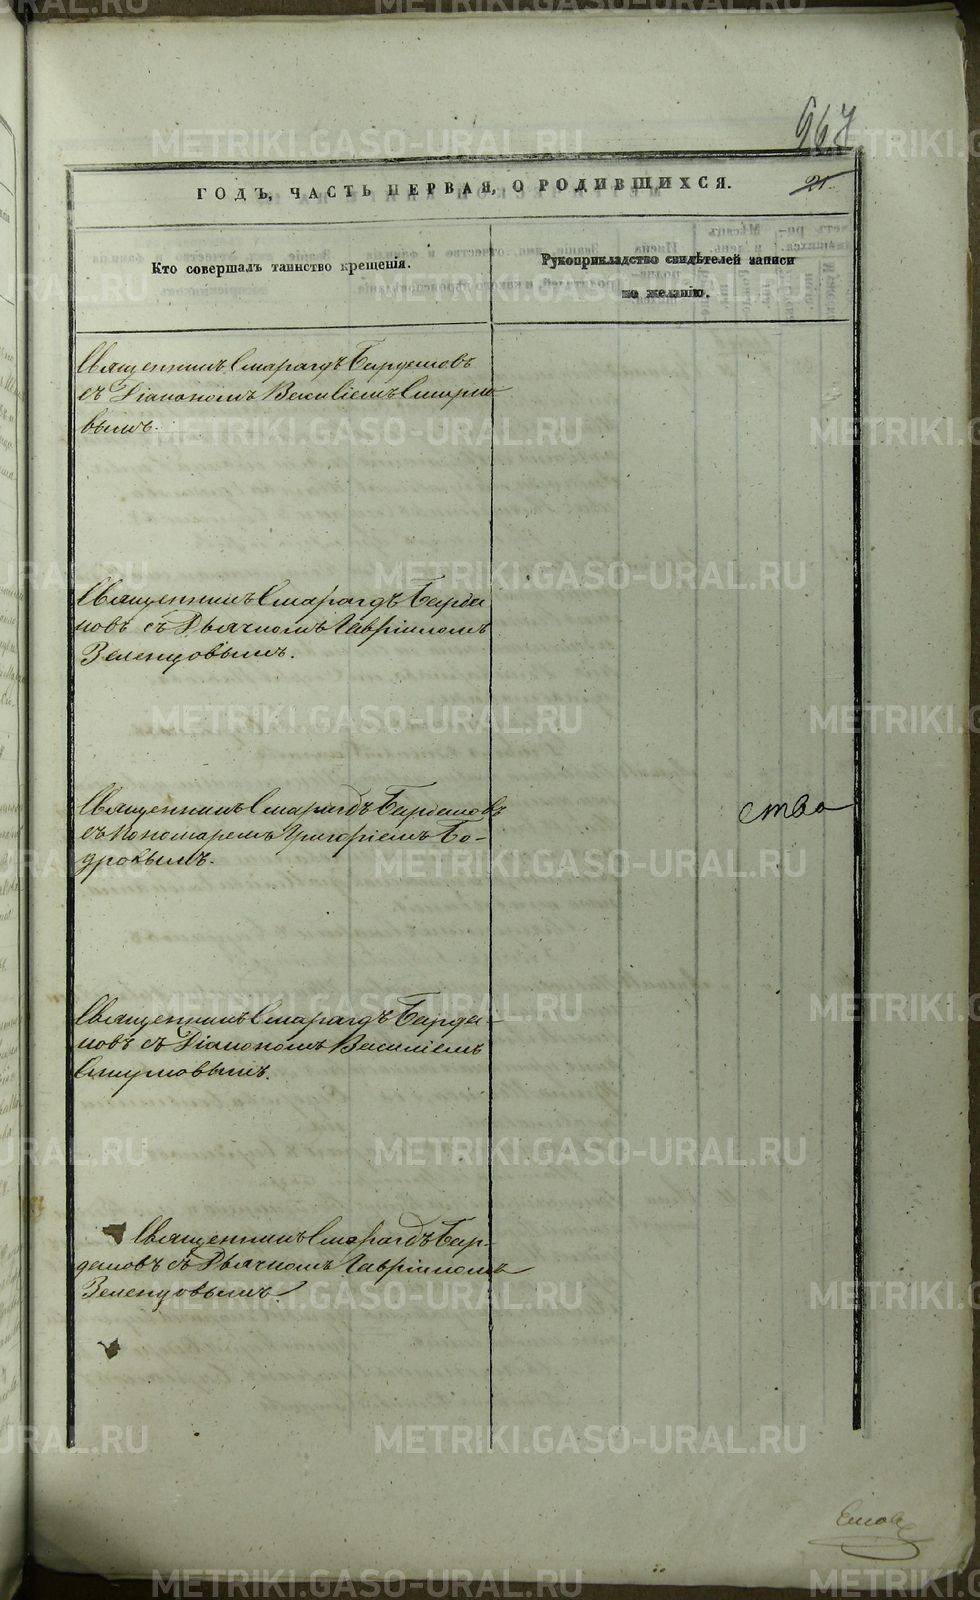 967
ГОДЪ, ЧАСТЬ ПЕРВАЯ, О РОДИВШИХСЯ.
21.
Кто совершалъ таинство крещенія.
Рукоприкладство свидѣтелей записи
по желанію.
Священникъ Смарагдъ Бирюковъ
съ Діакономъ Василіемъ Смирно
вымъ.
Священникъ Смарагдъ Барда
ковъ съ Дьячкомъ Гавріиломъ
Зеленцовымъ.
Священникъ Смарагдъ Бардаковъ
съ Пономаремъ Григоріемъ Бо-
дровымъ.
ства
Священникъ Смарагдъ Барда-
ковъ съ Діакономъ Василіемъ
Смирновымъ.
Священникъ Смарагдъ Бар-
даковъ съ Дьячкомъ Гавріиломъ
Зеленцовымъ.
METRIKI.GASO-URAL.RU